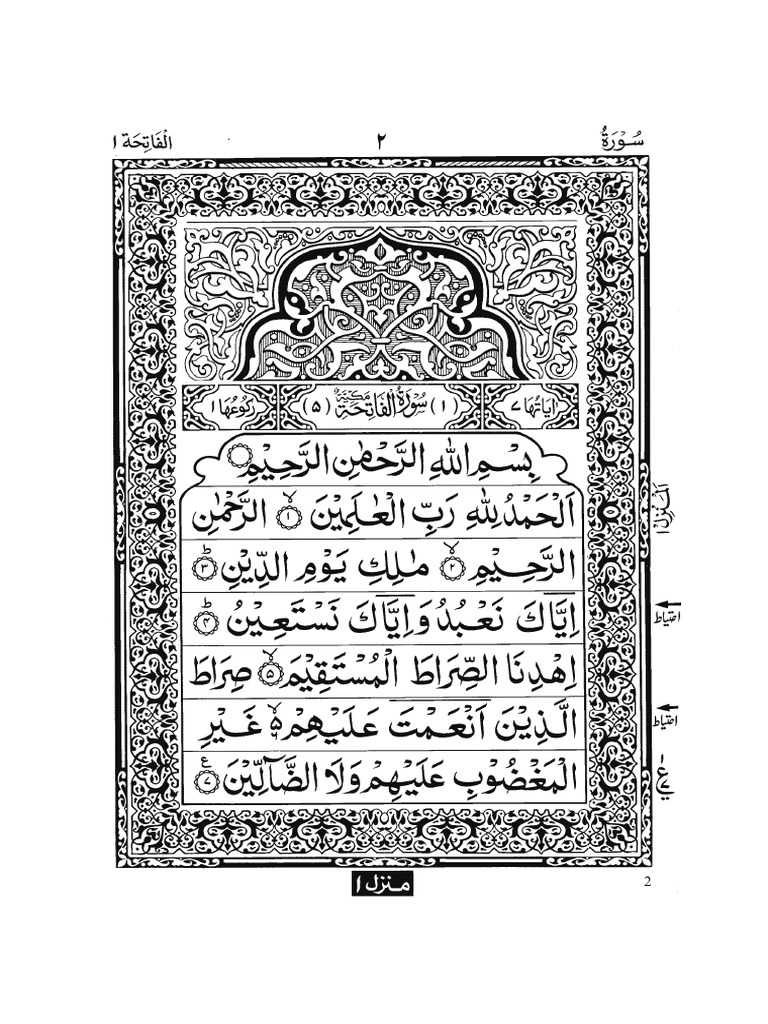 سُوۡرَةُ ٢ الۡفَاتِحَة ١
اٰيَاتُهَا ٧ (١) سُوۡرَةُ الۡفَاتِحَةِ مَكِّيَّةٌ (٥) رُكُوۡعُهَا ١
بِسۡمِ اللّٰهِ الرَّحۡمٰنِ الرَّحِيۡمِ
اَلۡحَمۡدُ لِلّٰهِ رَبِّ الۡعٰلَمِيۡنَ ۙ‏﴿١﴾ الرَّحۡمٰنِ
الرَّحِيۡمِ ۙ‏﴿٢﴾ مٰلِكِ يَوۡمِ الدِّيۡنِ ؕ‏﴿٣﴾
اِيَّاكَ نَعۡبُدُ وَاِيَّاكَ نَسۡتَعِيۡنُ ؕ‏﴿٤﴾
اِهۡدِنَا الصِّرَاطَ الۡمُسۡتَقِيۡمَ ۙ‏﴿٥﴾ صِرَاطَ
الَّذِيۡنَ اَنۡعَمۡتَ عَلَيۡهِمۡ ۙ۵ غَيۡرِ
الۡمَغۡضُوۡبِ عَلَيۡهِمۡ وَلَا الضَّآلِّيۡنَ ﴿٧﴾ ع
اَلۡمَنۡزِل ١
احتياط
احتياط
منزل ١
2